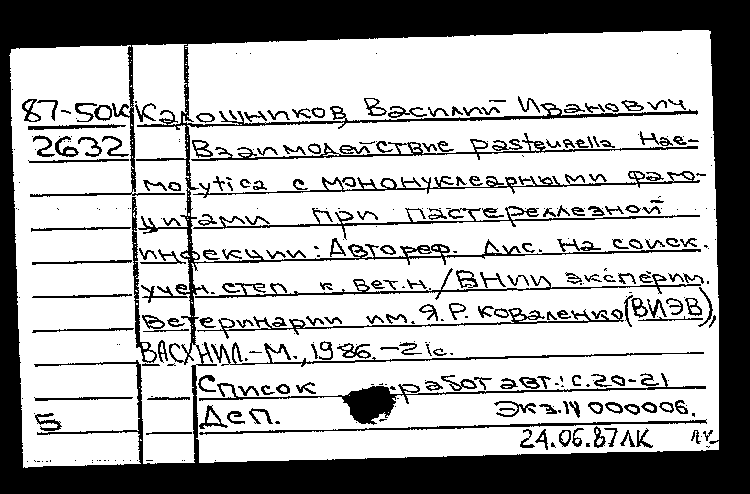 87-50к Калошников, Василий Иванович
2632 Взаимодействие pasteurella Hae-
molytica с мононуклеарными фаго-
цитами при пастереллезной
инфекции: Автореф. дис. на соиск.
учен. степ. к. вет. н. / ВНИИ эксперим.
ветеринарии им. Я. Р. Коваленко (ВИЭВ),
ВАСХНИЛ. - М., 1986. - 21с.
Список работ авт.: с. 20-21
5 Деп. Экз. N 000006.
24.06.87 ЛК